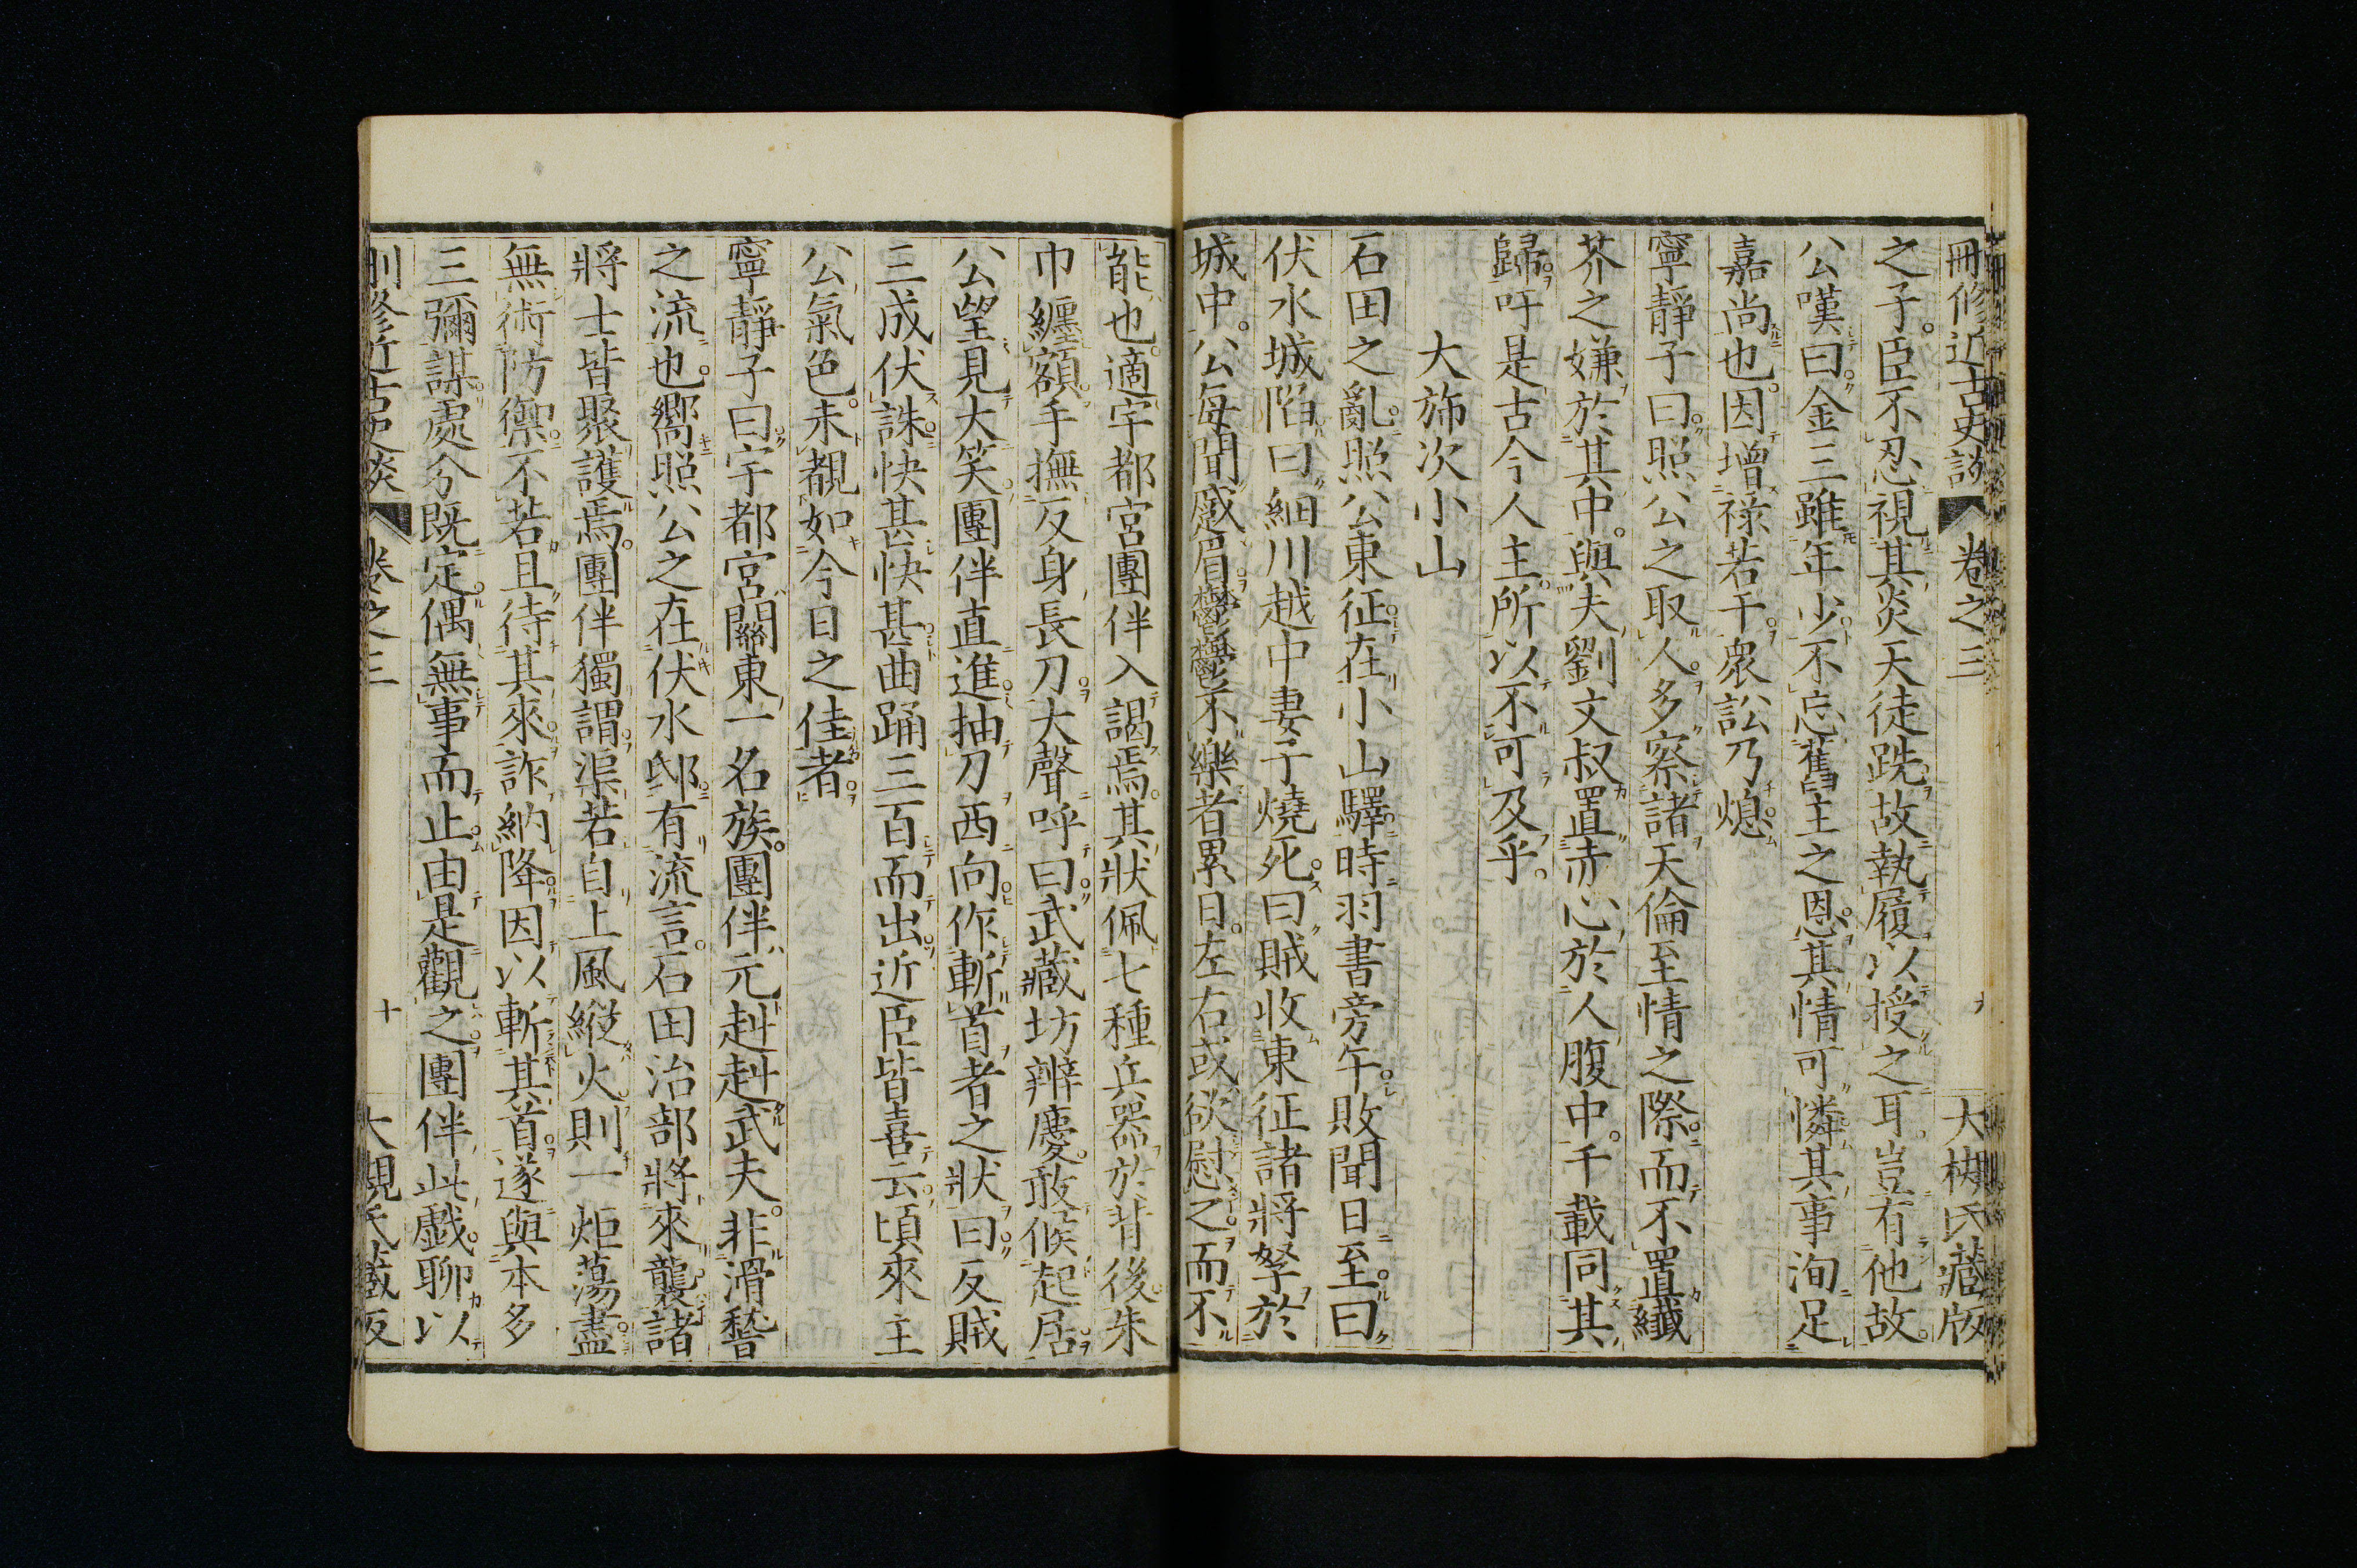 刪修近古史談 卷之三 九 大槻氏藏版
之子。臣不忍視其炎天徒跣故執履以授之耳豈有他故
公嘆曰金三雖年少不忘舊主之恩其情可憐其事洵足
嘉尚也。因增祿若干衆訟乃熄
寧靜子曰照公之取人多察諸天倫至情之際而不置纖
芥之嫌於其中。與夫劉文叔置赤心於人腹中。千載同其
歸吁是古今人主。所以不可及乎。
大旆次小山
石田之亂照公東征在小山驛時羽書旁午。敗聞日至曰
伏水城陷曰細川越中妻子燒死。曰賊收東征諸將孥於
城中。公每聞蹙眉鬱鬱不樂者累日。左右或欲慰之而不
能也。適宇都宮團伴入謁焉。其狀佩七種兵器於背後。朱
巾纏額手撫反身長刀大聲呼曰武藏坊辨慶敢候起居
公望見大笑團伴直進抽刀西向作斬首者之狀曰反賊
三成伏誅快甚快甚曲踊三百而出近臣皆喜云頃來主
公氣色未覩如今日之佳者
寧靜子曰宇都宮關東一名族。團伴元赳赳武夫。非滑稽
之流也。嚮照公之在伏水邸有流言。石田治部將來襲諸
將士皆聚護焉。團伴獨謂渠若自上風縱火則一炬蕩盡
無術防禦不若且待其來詐納降因以斬其首遂與本多
三彌謀處分既定偶無事而止由是觀之團伴此戲聊以
刪修近古史談 卷之三 十 大槻氏藏版